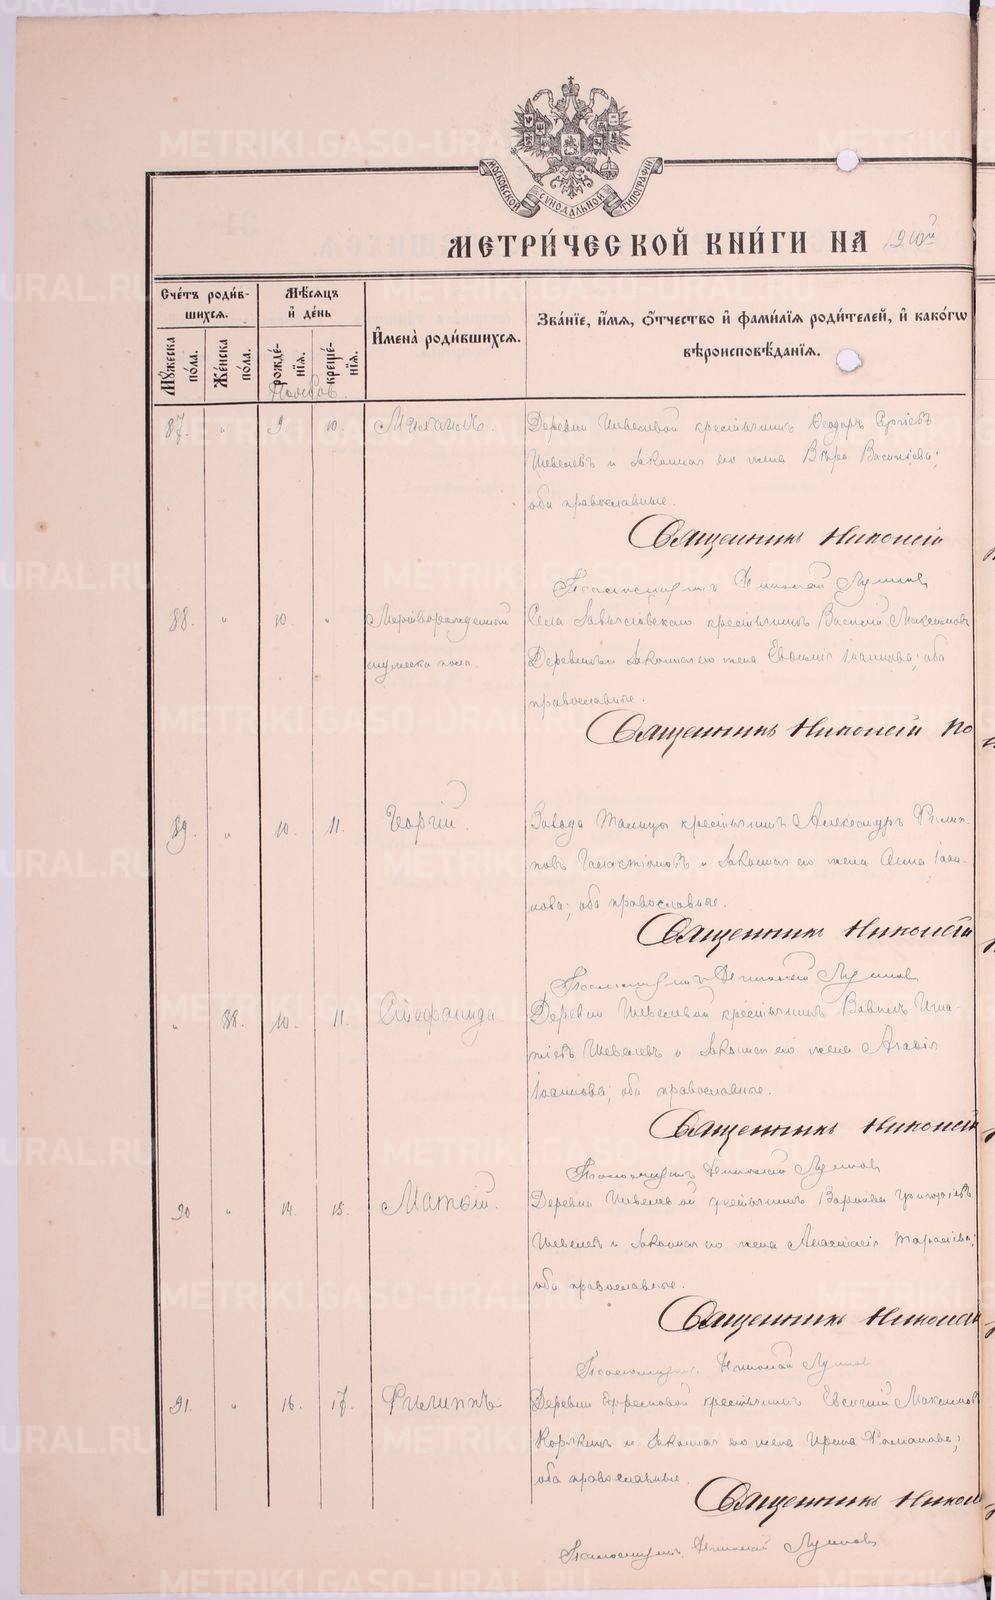 МОСКОВСКОЙ СѴНОДАЛЬНОЙ ТИПОГРАФІИ
МЕТРИ́ЧЕСКОЙ КНИ́ГИ НА
Сче́тъ роди́вшихся.
Мѣ́сяцъ и де́нь
Имена̀ роди́вшихся.
Зва́нїе, и́мѧ, ѻ́тчество и фами́лїѧ роди́телей, и како́гѡ
вѣроисповѣ́данїѧ.
Мꙋ́жеска по́ла.
Же́нска по́ла.
рожде́нїѧ.
креще́нїѧ.
Ноября
87. " 9. 10. Михаилъ. Деревни Шевелевой крестьянинъ Ѳеодоръ Сергіевъ
Шевелевъ и законная его жена Вѣра Василіева;
оба православные.
Священникъ Николай
Псаломщикъ Николай
88. " 10. " Мертворожденный Села крестьянинъ Василій Максимовъ
мужеска пола. и законная его жена Евѳимія Іоаннова; оба
православные.
Священникъ Николай
89. " 10. 11. Георгій. Завода Талицы крестьянинъ Александръ Филип-
повъ и законная его жена Анна Іоан-
нова; оба православные.
Священникъ Николай
Псаломщикъ Николай
" 88. 10. 11. Стефанида. Деревни Шевелевой крестьянинъ Игна-
тіевъ Шевелевъ и законная его жена Агафія
Іоаннова; оба православные.
Священникъ Николай
Псаломщикъ Николай
90 " 14. 15. Матѳій. Деревни Шевелевой крестьянинъ Григоріевъ
Шевелевъ и законная его жена Анастасія Тарасіева;
оба православные.
Священникъ Николай
Псаломщикъ Николай
91. " 16. 17. Филиппъ Деревни Ефремовой крестьянинъ Евсигній Максимовъ
и законная его жена Ирина Романова;
оба православные.
Священникъ
Псаломщикъ Николай
METRIKI.GASO-URAL.RU